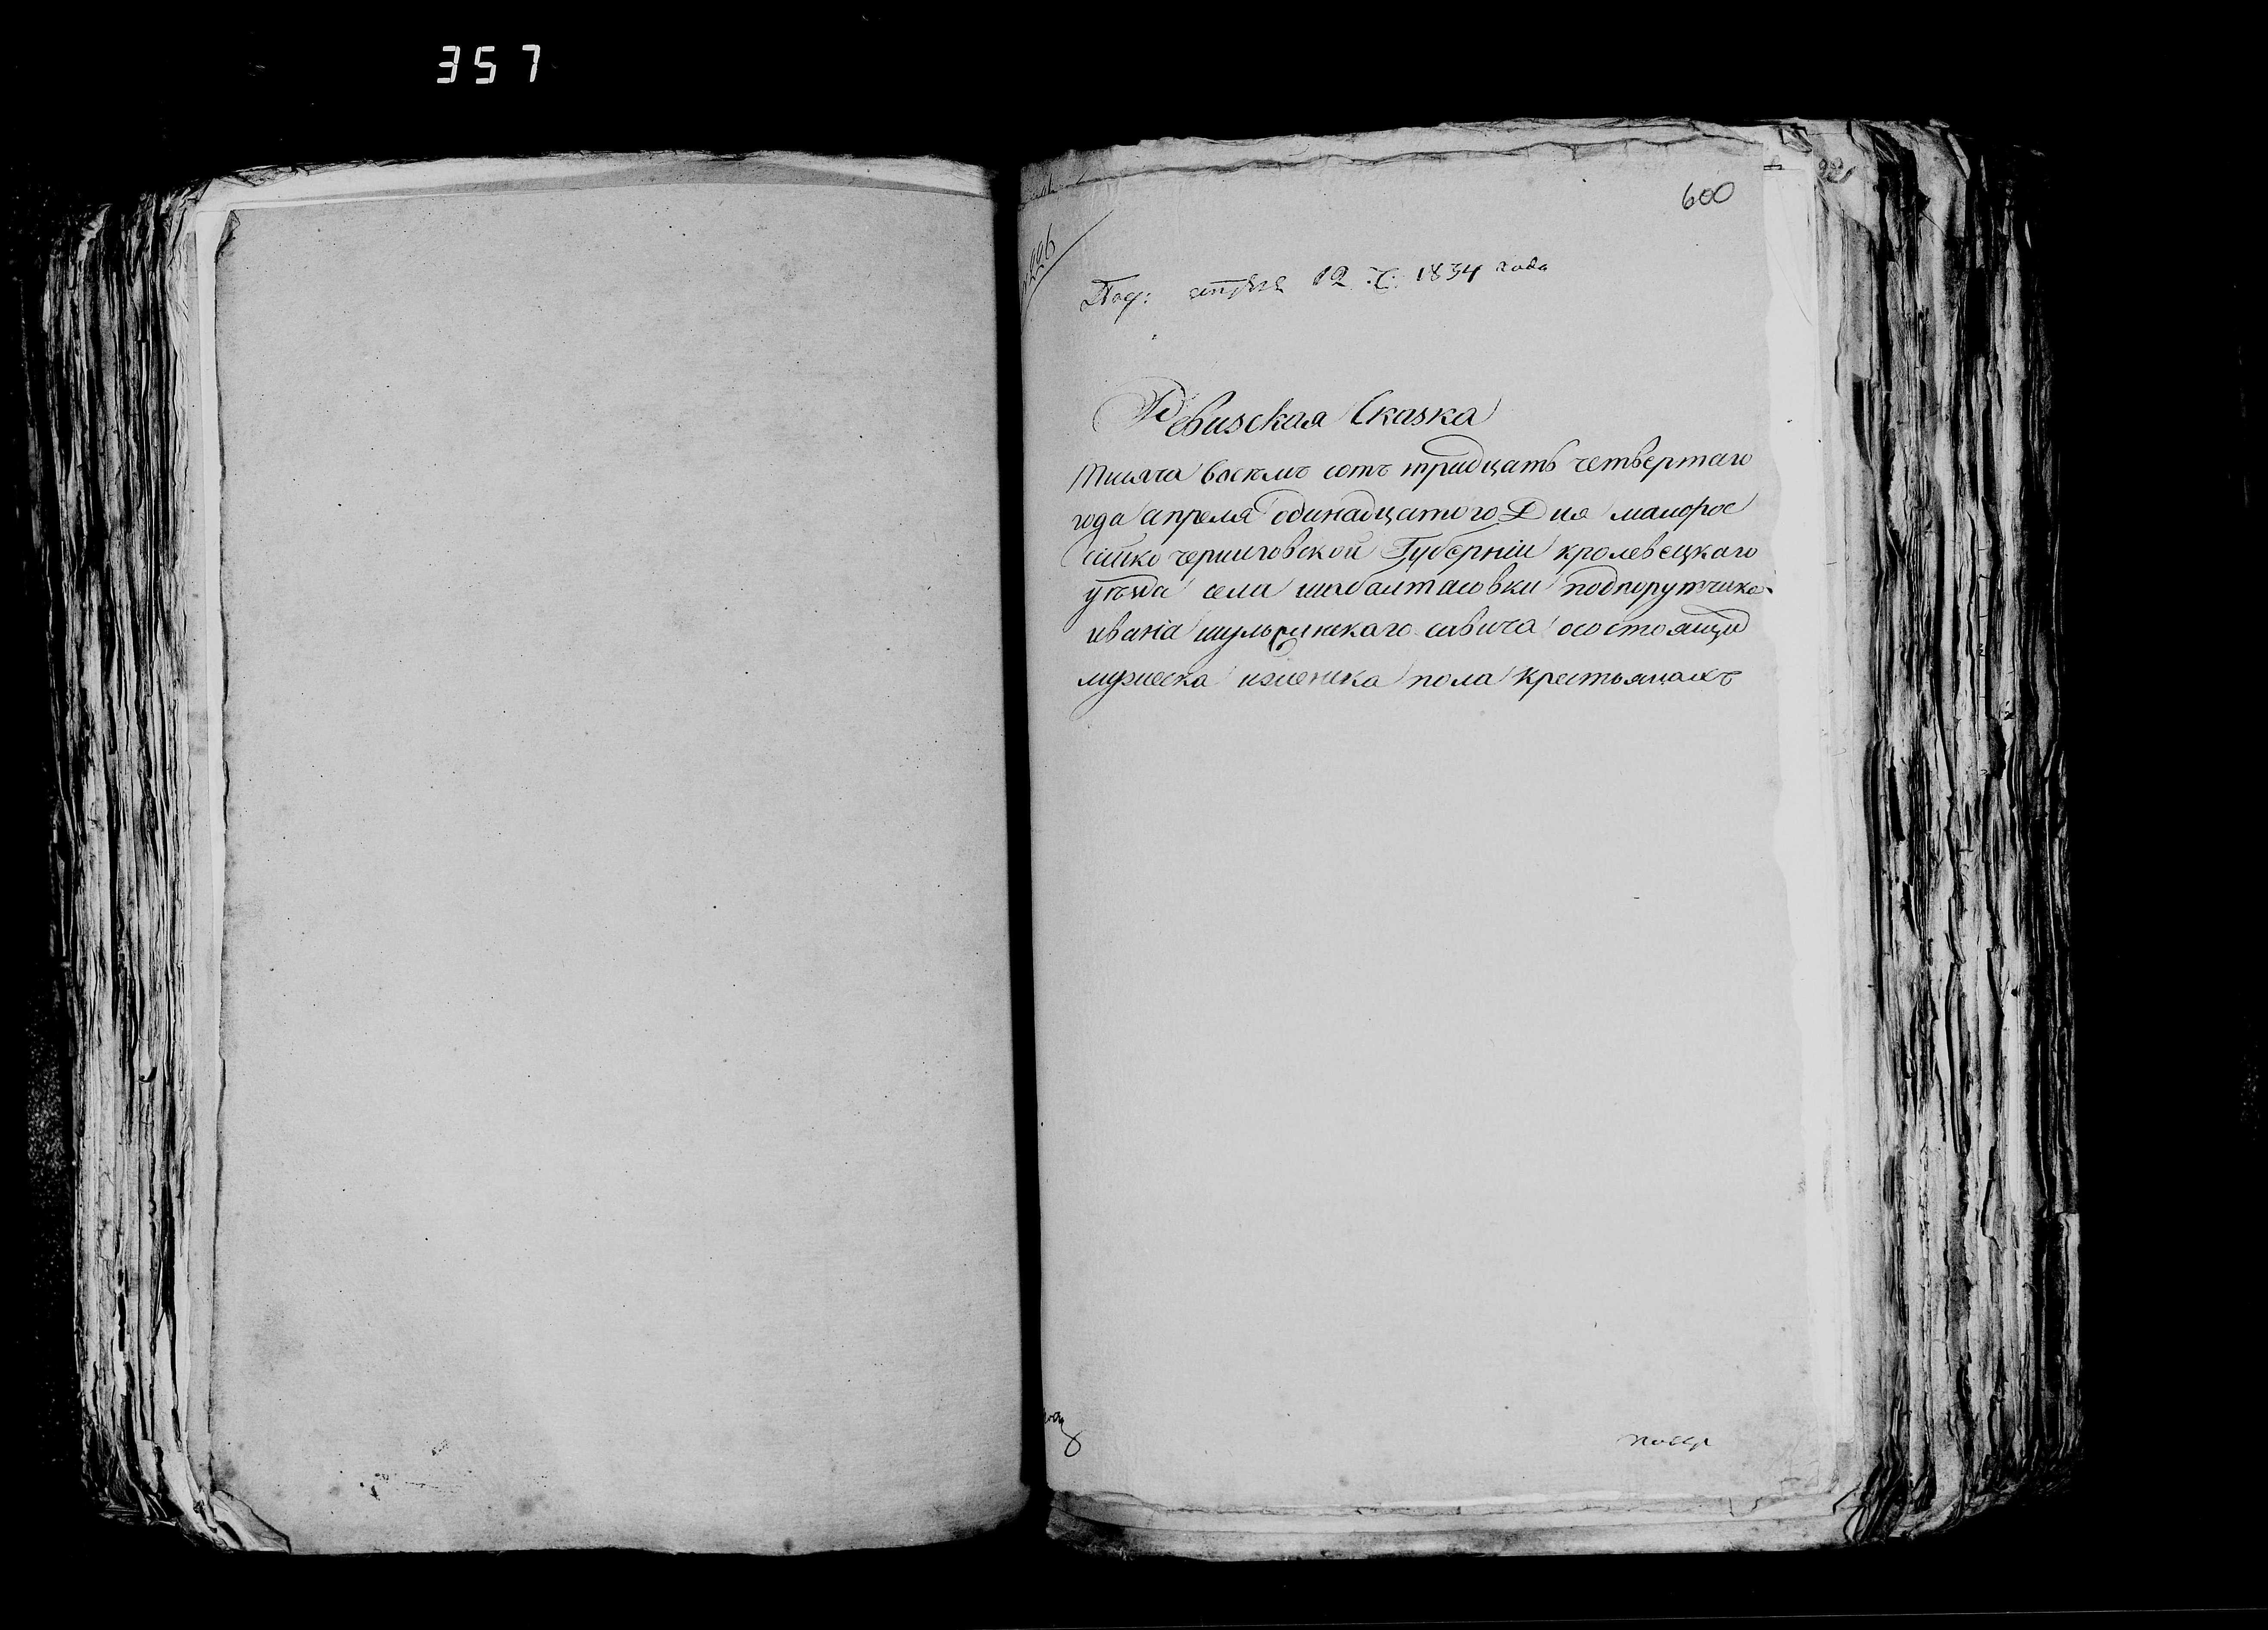 357
600
226
Под: апреля 12 ч: 1834 года
Ревизская Сказка
тисяча восемъ сотъ тридцать четвертаго
года апреля одинадцатого Дня малорос
сійко черниговской Губерніи кролевецкаго
уезда села шабалтасовки подпорутчика
ивана шульгинскаго савича осостоящих
мужеска иженска пола крестьянахъ